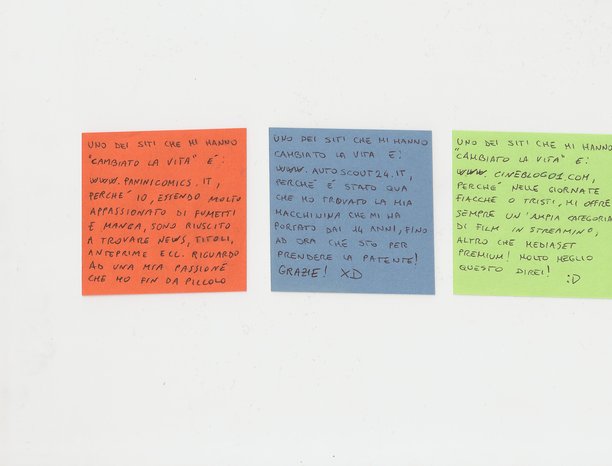 UNO DEI SITI CHE MI HANNO
"CAMBIATO LA VITA" É:
WWW.PANINICOMICS.IT,
PERCHÉ IO, ESSENDO MOLTO
APPASSIONATO DI FUMETTI
E MANGA, SONO RIUSCITO
A TROVARE NEWS, TITOLI,
ANTEPRIME ECC. RIGUARDO
AD UNA MIA PASSIONE
CHE HO FIN DA PICCOLO
UNO DEI SITI CHE MI HANNO
CAMBIATO LA VITA É:
WWW.AUTOSCOUT24.IT,
PERCHÉ É STATO QUA
CHE HO TROVATO LA MIA
MACCHININA CHE MI HA
PORTATO DAI 14 ANNI, FINO
AD ORA CHE STO PER
PRENDERE LA PATENTE!
GRAZIE! XD
UNO DEI SITI CHE MI HANNO
"CAMBIATO LA VITA" É:
WWW.CINEBLOG01.COM,
PERCHÉ NELLE GIORNATE
FIACCHE O TRISTI, MI OFFRE
SEMPRE UN'AMPIA CATEGORIA
DI FILM IN STREAMING,
ALTRO CHE MEDIASET
PREMIUM! MOLTO MEGLIO
QUESTO DIREI! :D